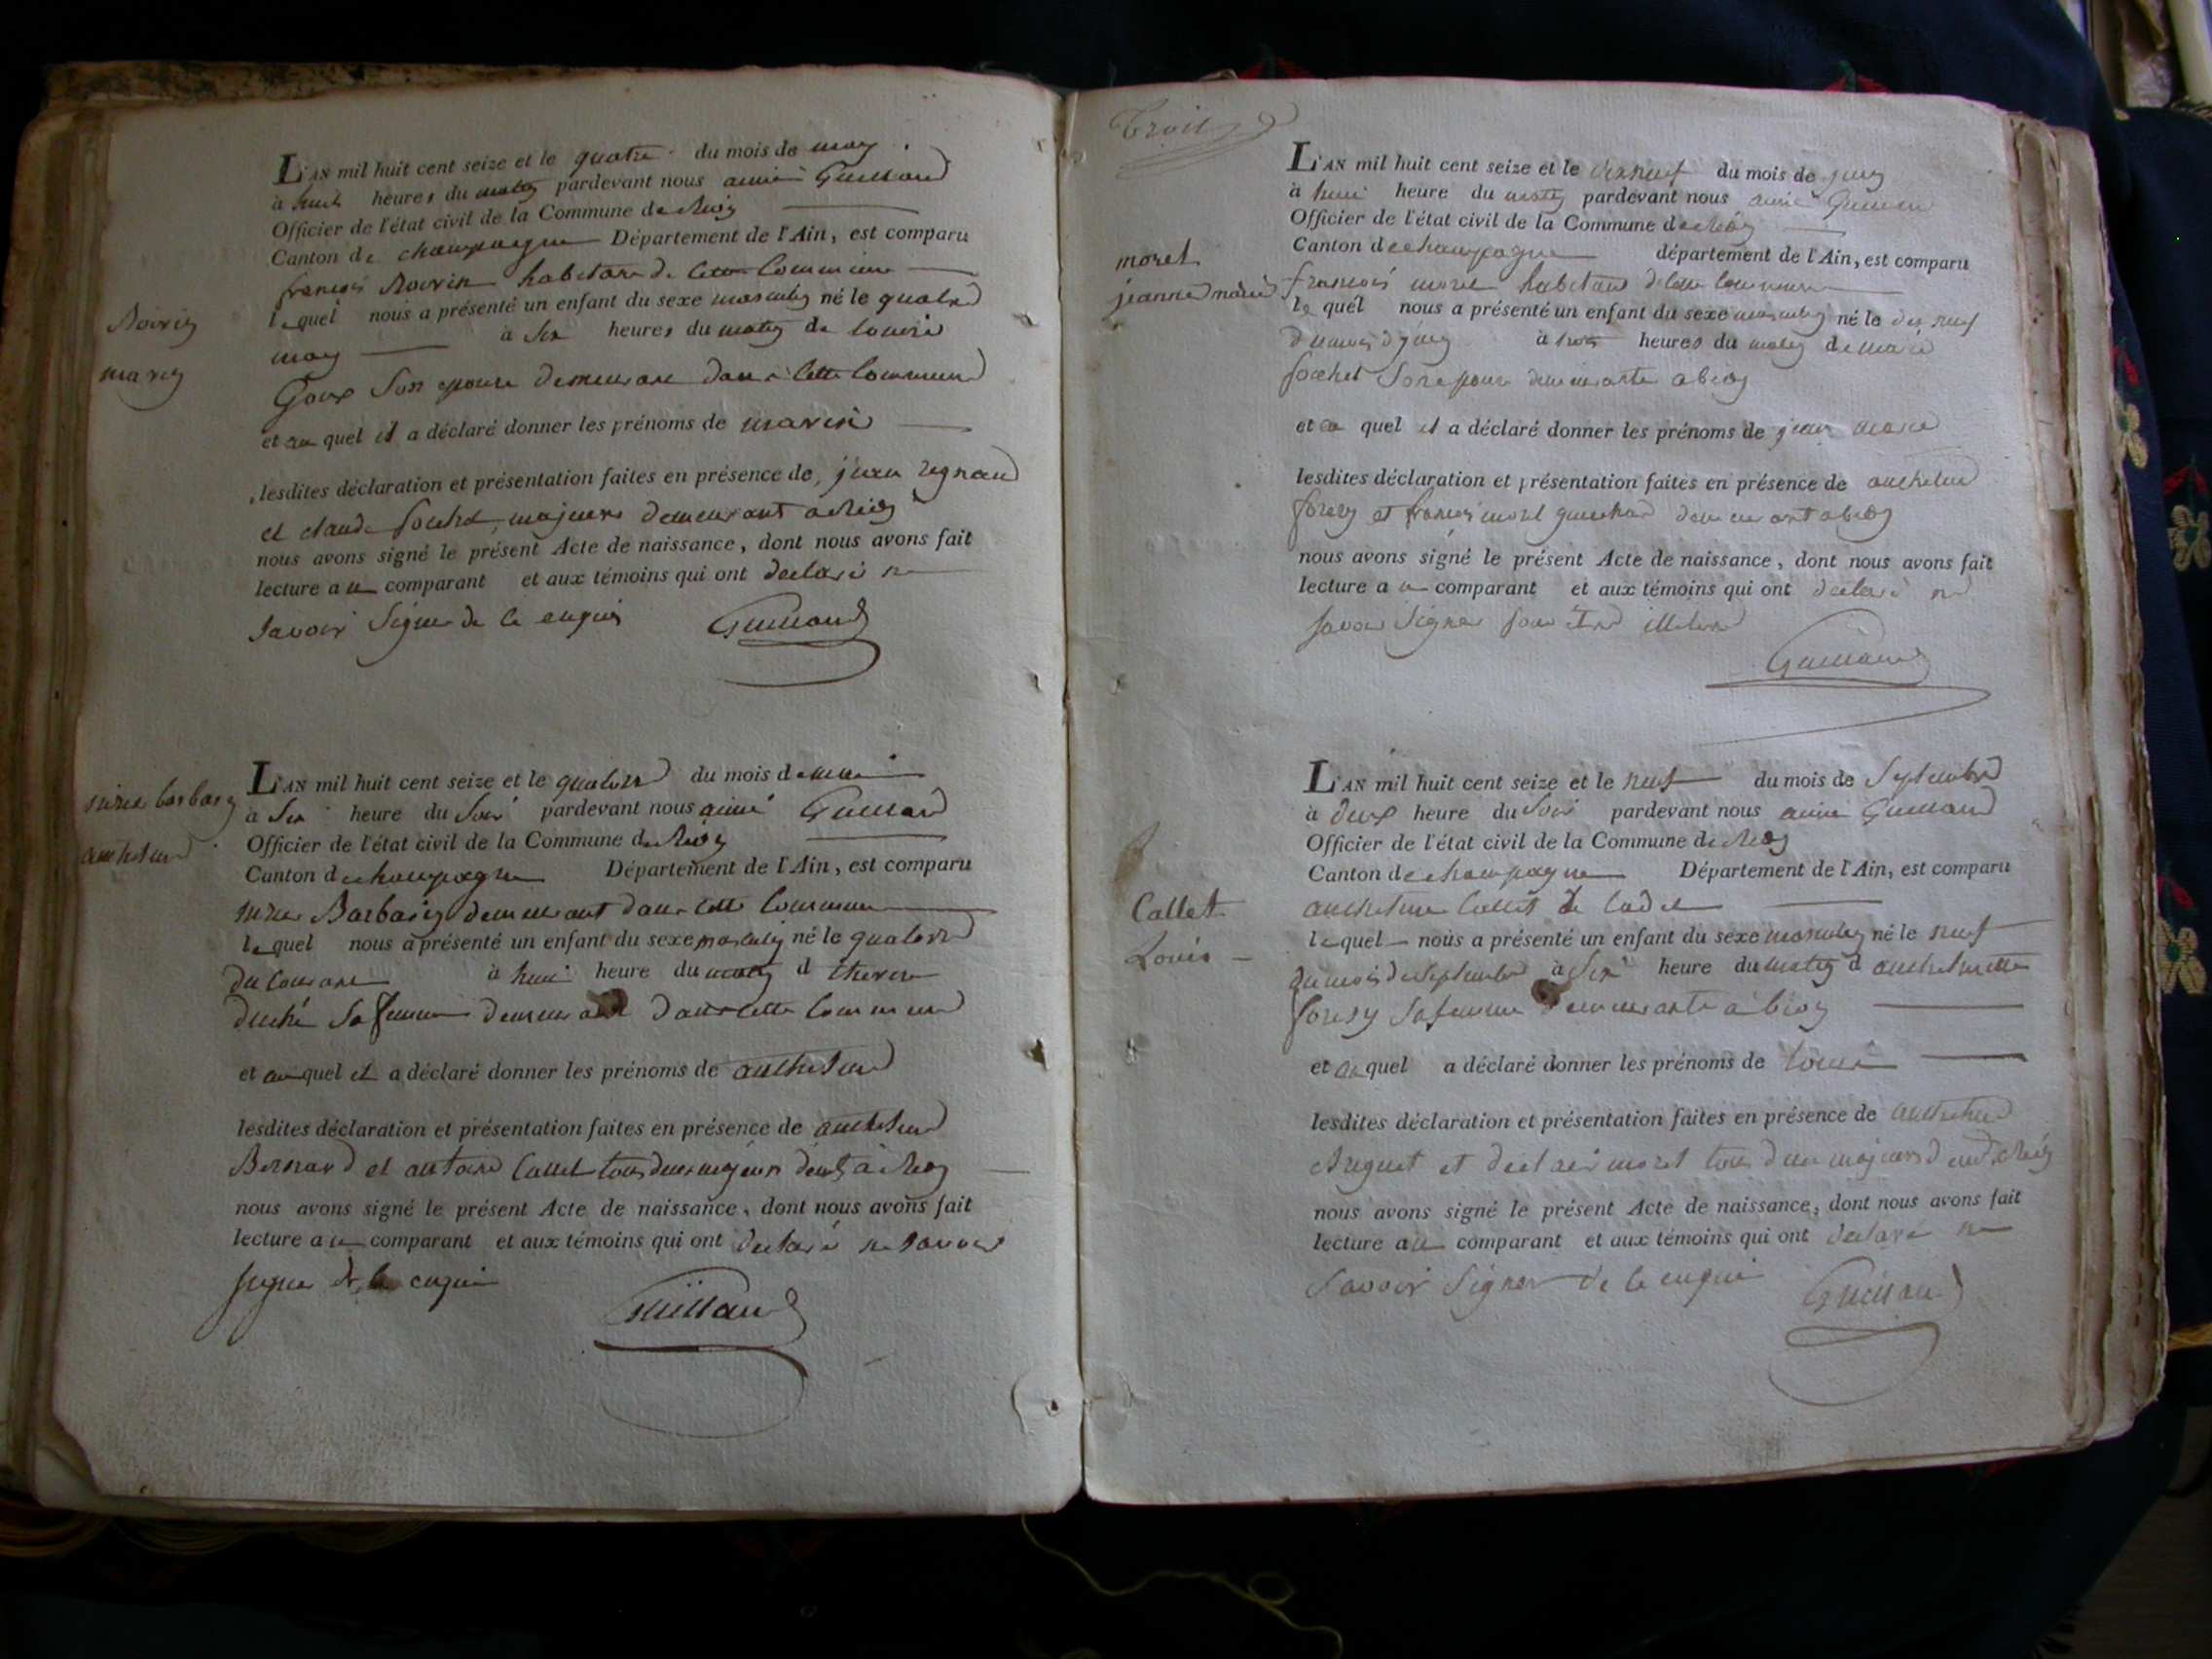 L'AN mil huit cent seize et le quatre du mois de may
à huit heures du matin pardevant nous aimé Guilland
Officier de l'état civil de la Commune de
Canton de champagne Département de l'Ain, est comparu
françois habitant de cette Commune
lequel nous a présenté un enfant du sexe masculin né le quatre
may à six heures du matin de louise
Goux Son epouse demeurant dans cette Commune
et au quel il a déclaré donner les prénoms de marin
lesdites déclaration et présentation faites en présence de jean
et claude majeurs demeurant a
nous avons signé le présent Acte de naissance, dont nous avons fait
lecture au comparant et aux témoins qui ont declaré ne
savoir Signer de ce enquis Guilland
marin
L'AN mil huit cent seize et le quatorze du mois de
à Six heure du Soir pardevant nous aimé Guilland
Officier de l'état civil de la Commune de
Canton de champagne Département de l'Ain, est comparu
Barbarin demeurant dans cette Commune
lequel nous a présenté un enfant du sexe masculin né le quatorze
du courant à huit heure du matin d
Sa femme demeurant dans cette Commune
et au quel il a déclaré donner les prénoms de anthelme
lesdites déclaration et présentation faites en présence de anthelme
Bernard et antoine Callet tous deux majeurs
nous avons signé le présent Acte de naissance, dont nous avons fait
lecture au comparant et aux témoins qui ont declaré ne savoir
signer de ce enquis
Guilland
anthelme
Trois
L'AN mil huit cent seize et le dix neuf du mois de
à huit heure du matin pardevant nous aimé
Officier de l'état civil de la Commune de
Canton de champagne département de l'Ain, est comparu
françois morel habitant de cette commune
le quel nous a présenté un enfant du sexe masculin né le dix neuf
du mois de à heures du matin de marie
Son epouse demeurante a
et au quel il a déclaré donner les prénoms de jean marie
lesdites déclaration et présentation faites en présence de anthelme
et françois morel demeurant a
nous avons signé le présent Acte de naissance, dont nous avons fait
lecture au comparant et aux témoins qui ont declaré ne
savoir Signer pour être
Guilland
morel
jeanne marie
L'AN mil huit cent seize et le neuf du mois de Septembre
à deux heure du Soir pardevant nous aimé Guilland
Officier de l'état civil de la Commune de
Canton de champagne Département de l'Ain, est comparu
anthelme Callet
lequel nous a présenté un enfant du sexe masculin né le neuf
du mois de Septembre à Six heure du matin d anthelmette
sa femme demeurante à
et au quel a déclaré donner les prénoms de louis
lesdites déclaration et présentation faites en présence de anthelme
et morel tous deux majeurs
nous avons signé le présent Acte de naissance, dont nous avons fait
lecture au comparant et aux témoins qui ont declaré ne
Savoir Signer de ce enquis Guilland
Callet
Louis